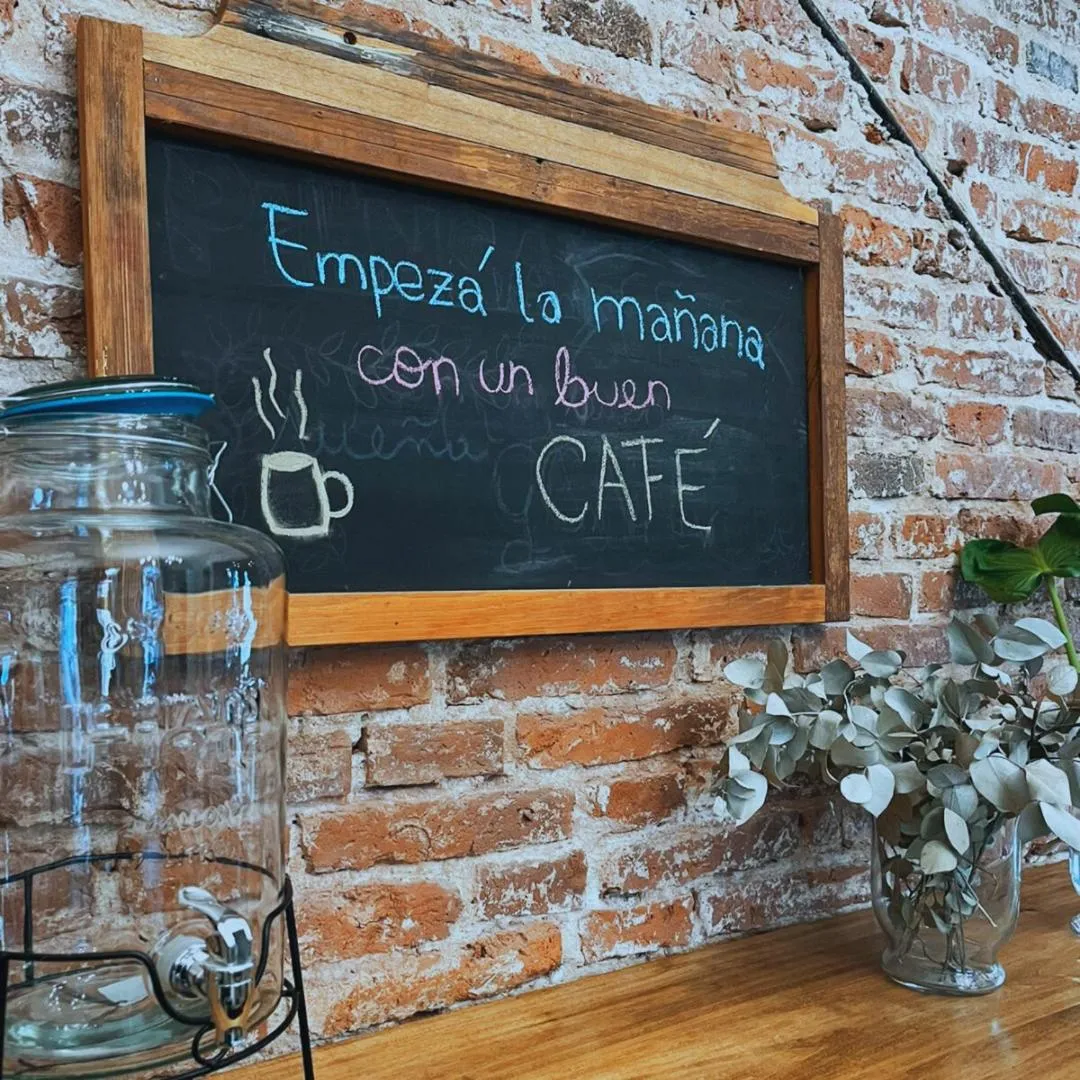 Empezá la mañana
con un buen
CAFÉ